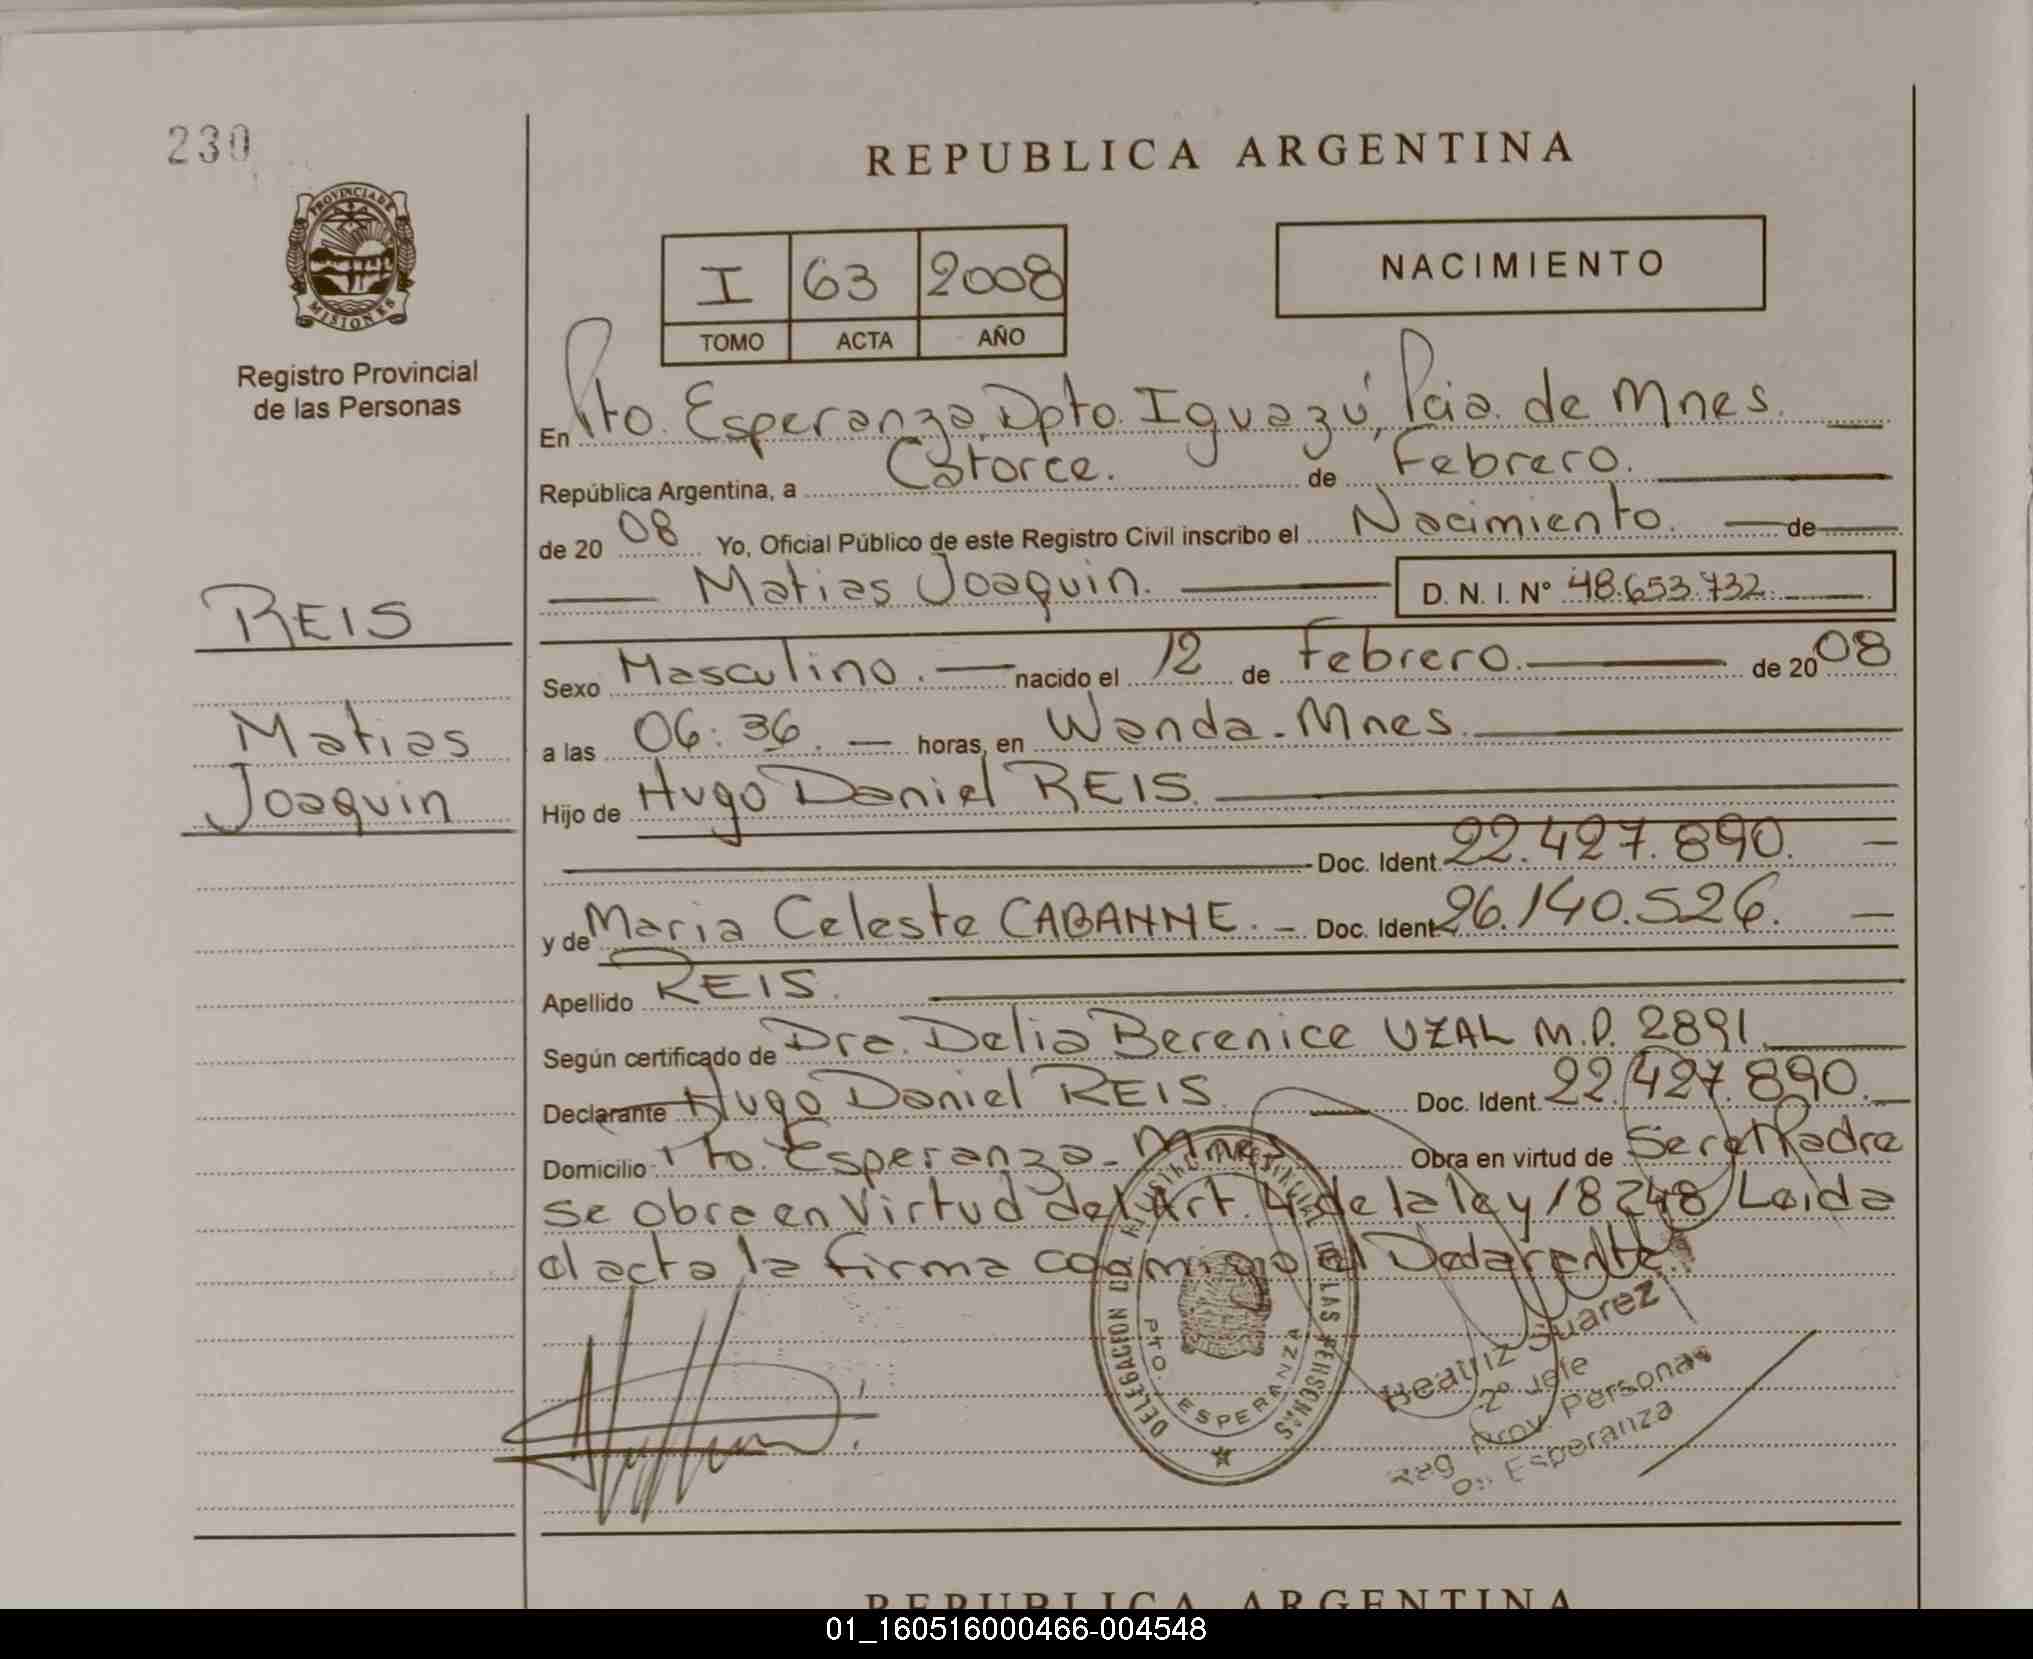 230
REPUBLICA ARGENTINA
PROVINCIA DE
MISIONES
Registro Provincial
de las Personas
I 63 2008
TOMO ACTA AÑO
NACIMIENTO
En Pto. Esperanza, Dpto. Iguazú, Pcia. de Mnes.
República Argentina, a Catorce. de Febrero.
de 20 08 Yo, Oficial Público de este Registro Civil inscribo el Nacimiento. de
Matias Joaquin. D. N. I. Nº 48.653.732.
REIS
Matias
Joaquin
Sexo Masculino. nacido el 12 de Febrero. de 20 08
a las 06:36. horas, en Wanda - Mnes.
Hijo de Hugo Daniel REIS.
Doc. Ident. 22.427.890.
y de Maria Celeste CABANNE. - Doc. Ident. 26.140.526.
Apellido REIS.
Según certificado de Dra. Delia Berenice UZAL M.P. 2891
Declarante Hugo Daniel REIS Doc. Ident. 22.427.890.
Domicilio Pto. Esperanza - Mnes Obra en virtud de Ser el Padre
se obra en Virtud del Art. 4 de la ley 18248 Leida
el acta la firma conmigo el Declarante.
DELEGACION DEL REGISTRO PROVINCIAL DE LAS PERSONAS
PTO. ESPERANZA
Beatriz Suarez
2º Jefe
Reg. Prov. Personas
Esperanza
REPUBLICA ARGENTINA
01_160516000466-004548